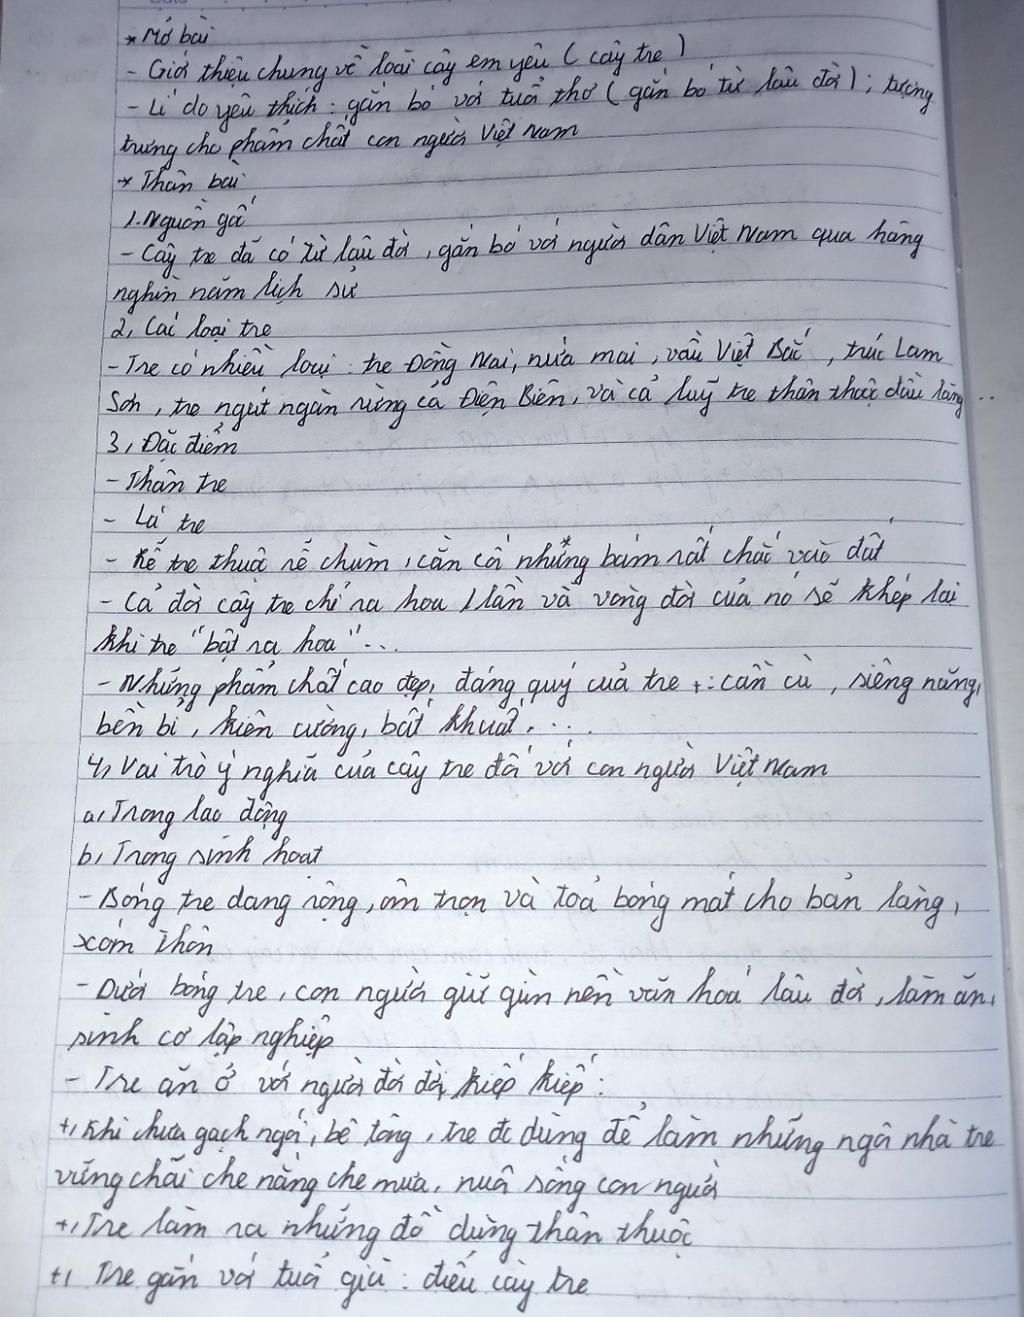 * Mở bài
- Giới thiệu chung về loài cây em yêu (cây tre)
- Lí do yêu thích: gắn bó với tuổi thơ (gắn bó từ lâu đời); tượng
trưng cho phẩm chất con người Việt Nam
* Thân bài
1. Nguồn gốc
- Cây tre đã có từ lâu đời, gắn bó với người dân Việt Nam qua hàng
nghìn năm lịch sử
2, Các loại tre
- Tre có nhiều loại: tre Đồng Nai, nứa mai, vầu Việt Bắc, trúc Lam
Sơn, tre ngút ngàn rừng cả Điện Biên, và cả luỹ tre thân thuộc đầu làng...
3, Đặc điểm
- Thân tre
- Lá tre
- Rễ tre thuộc rễ chùm, cằn cỗi nhưng bám rất chắc vào đất
- Cả đời cây tre chỉ ra hoa 1 lần và vòng đời của nó sẽ khép lại
khi tre "bật ra hoa"...
- Những phẩm chất cao đẹp, đáng quý của tre +: cần cù, siêng năng,
bền bỉ, kiên cường, bất khuất...
4, Vai trò ý nghĩa của cây tre đối với con người Việt Nam
a, Trong lao động
b, Trong sinh hoạt
- Bóng tre dang rộng, ôm trọn và toả bóng mát cho bản làng,
xóm thôn
- Dưới bóng tre, con người giữ gìn nền văn hoá lâu đời, làm ăn,
sinh cơ lập nghiệp
- Tre ăn ở với người đời đời, kiếp kiếp:
+, Khi chưa gạch ngói, bê tông, tre đc dùng để làm những ngôi nhà tre
vững chãi che nắng che mưa, nuôi sống con người
+, Tre làm ra những đồ dùng thân thuộc
+, Tre gắn với tuổi già: điếu cày tre